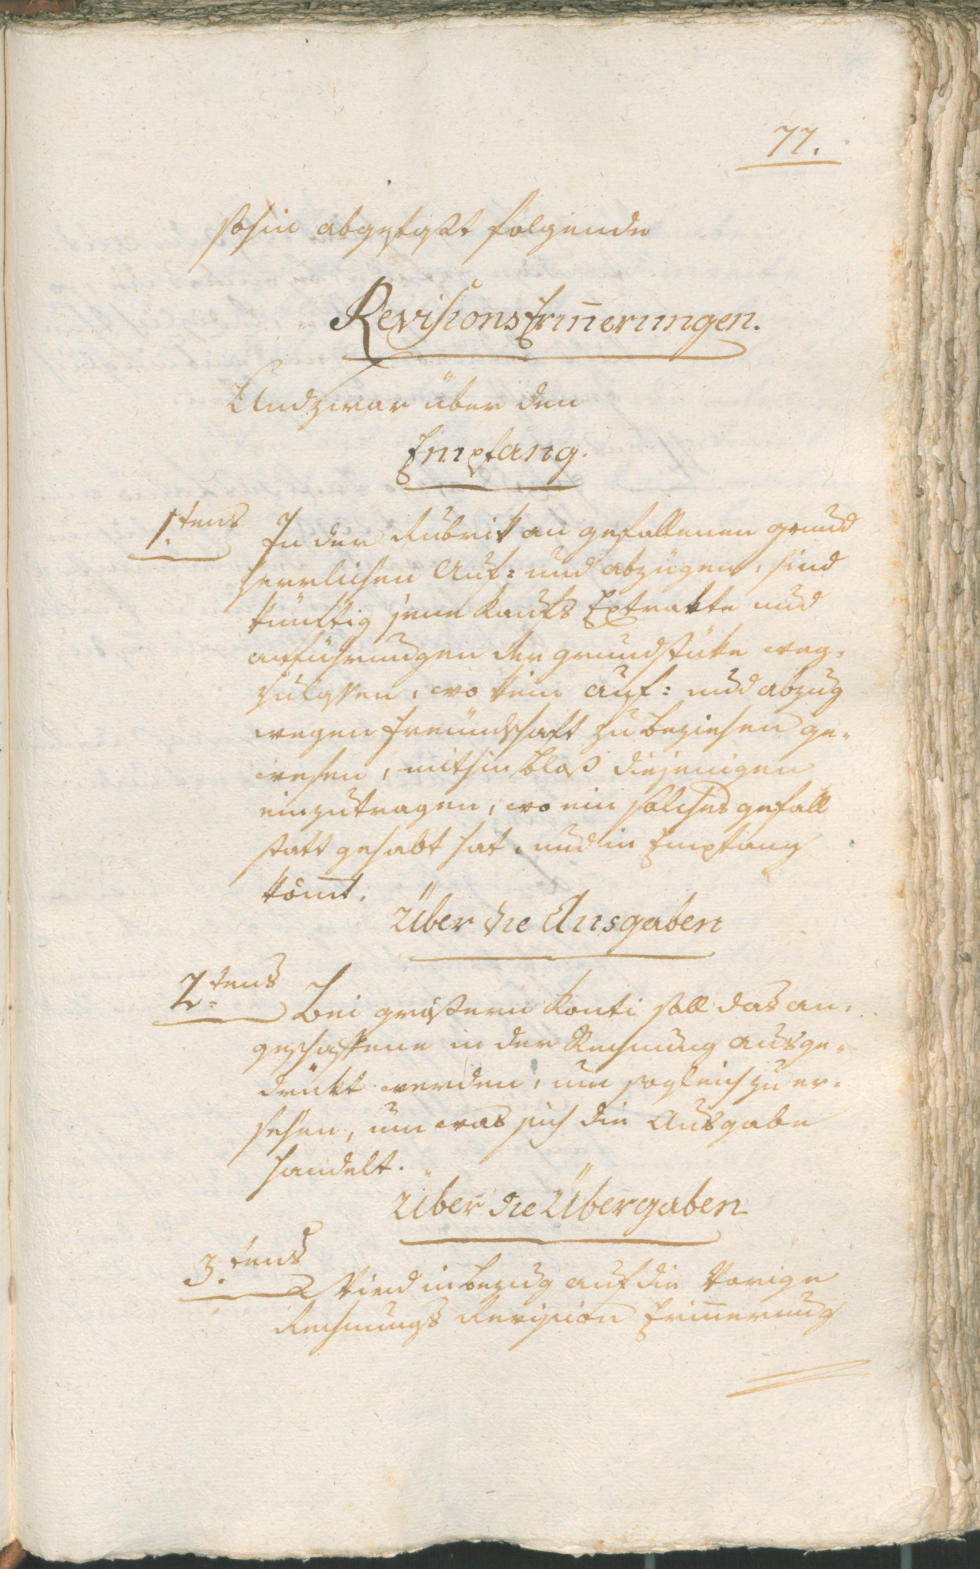 77.
sohin abgefaßt folgende
RevisionsErin̅erungen.
Und zwar über den
Empfang.
1.tens In der Rubrik an gefallenen grund
herrlichen Auf= und abzügen, sind
künftig jene Kaufs Extrakte und
anführungen der grundstüke weg=
zulassen, wo kein auf= und abzug
wegen Freundschaft zu beziehen ge=
wesen, mithin bloß diejenigen
einzutragen, wo ein solches gefäll
statt gehabt hat, und in Empfang
kom̅t.
Über die Ausgaben
2.tens Bei größern Konti soll das an=
geschaffene in der Rechnung ausge=
drükt werden, um sogleich zu er=
sehen, um was sich die Ausgabe
handelt.
Über die Übergaben
3.tens Wird in bezug auf die Vorige
Rechnungs Revision Erin̅erung